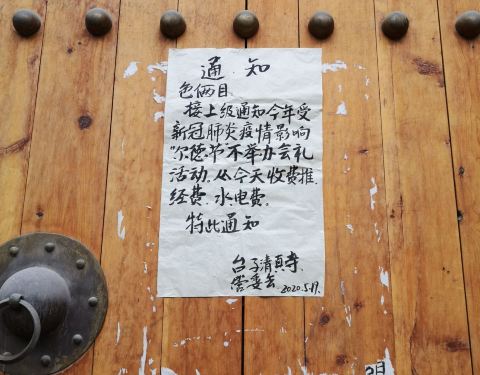 通知
色俩目
接上级通知今年受
新冠肺炎疫情影响
尔德节不举办会礼
活动。从今天收费推.
经费.水电费。
特此通知
台子清真寺
管委会
2020.5.19.